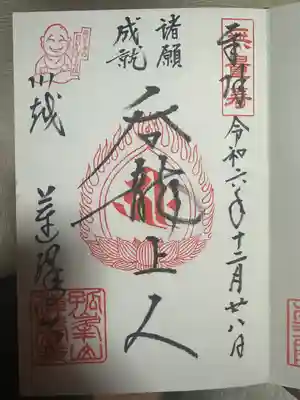 奉拝
令和六年十二月廿八日
諸願
成就
呑龍上人
川越
蓮馨寺
孤峯山